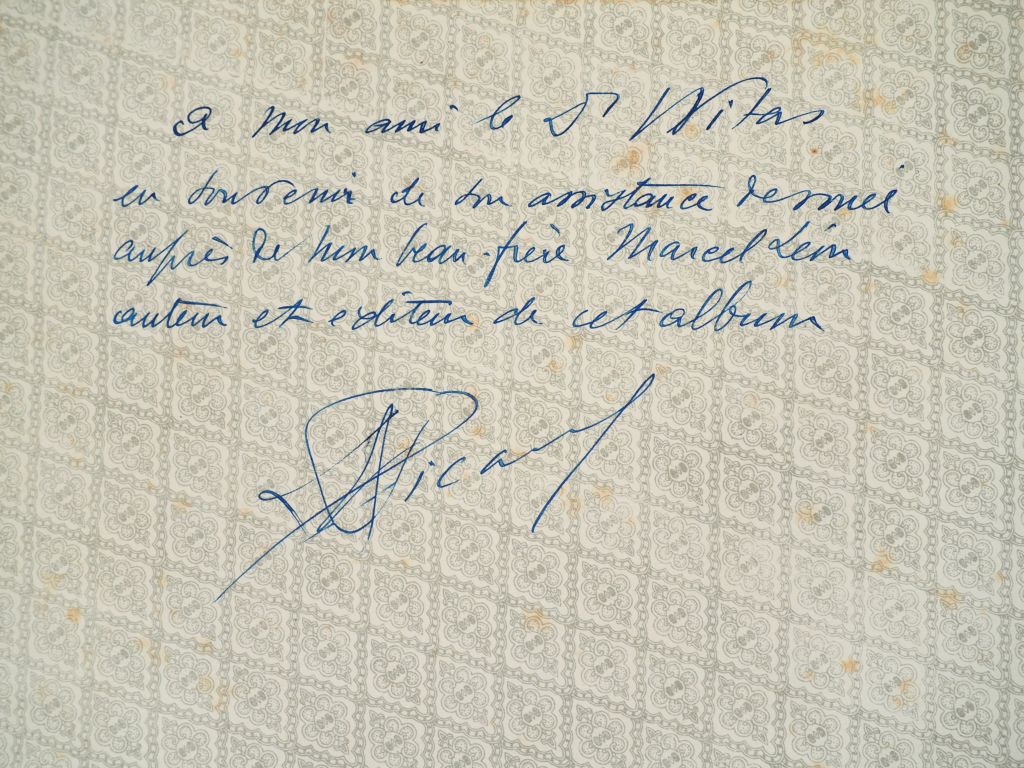 a mon ami le Dr Witas
en souvenir de son assistance
auprès de mon beau-frère Marcel Léon
auteur et editeur de cet album
Picard